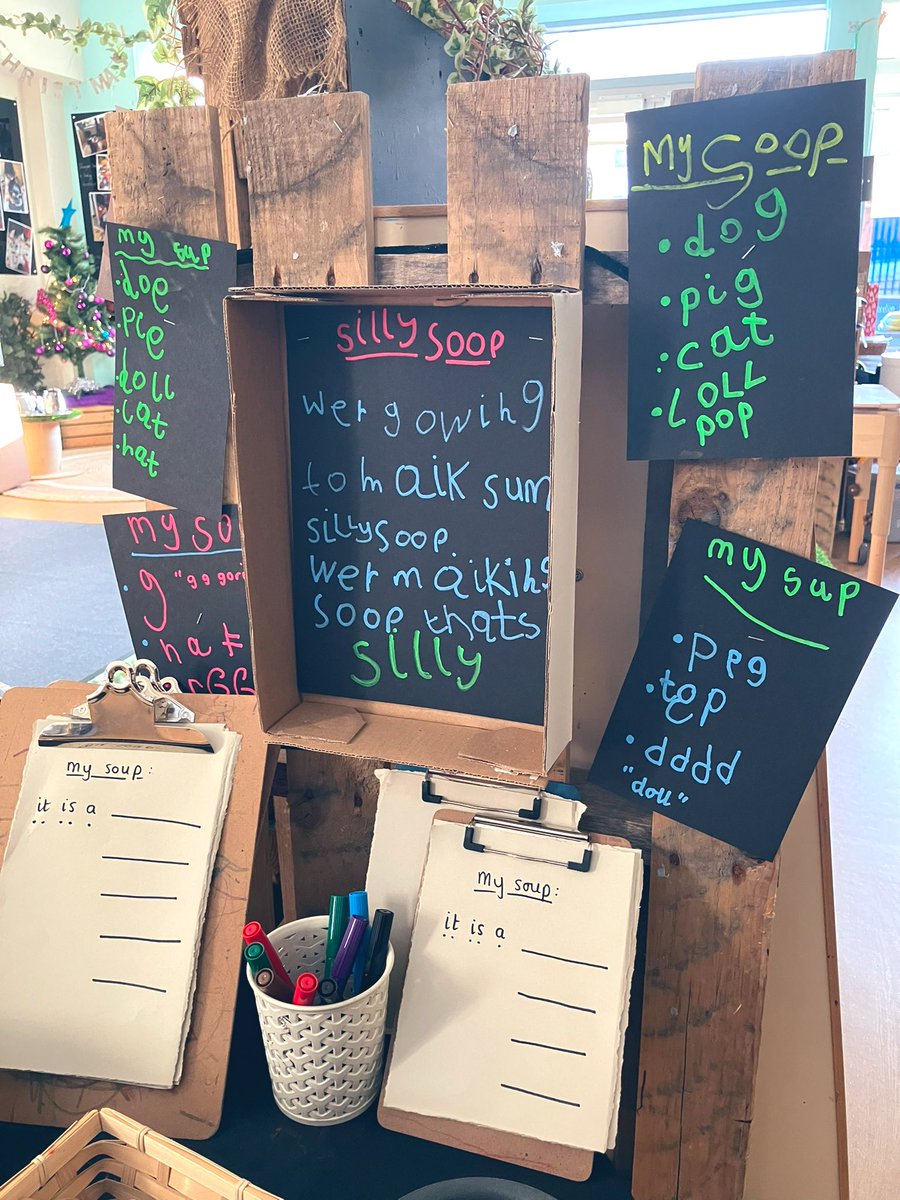 CHRISTMA
my sup
.doe
.pie
.doll
.cat
.hat
my so
.g "gg gor
.hat
rGG
silly soop
wer gowing
to maik sum
silly soop.
wer maiking
soop thats
silly
My Soop
.dog
.pig
.cat
.LOLL
pop
my sup
.peg
.tep
.dddd
"doll"
my soup:
it is a
my soup:
it is a